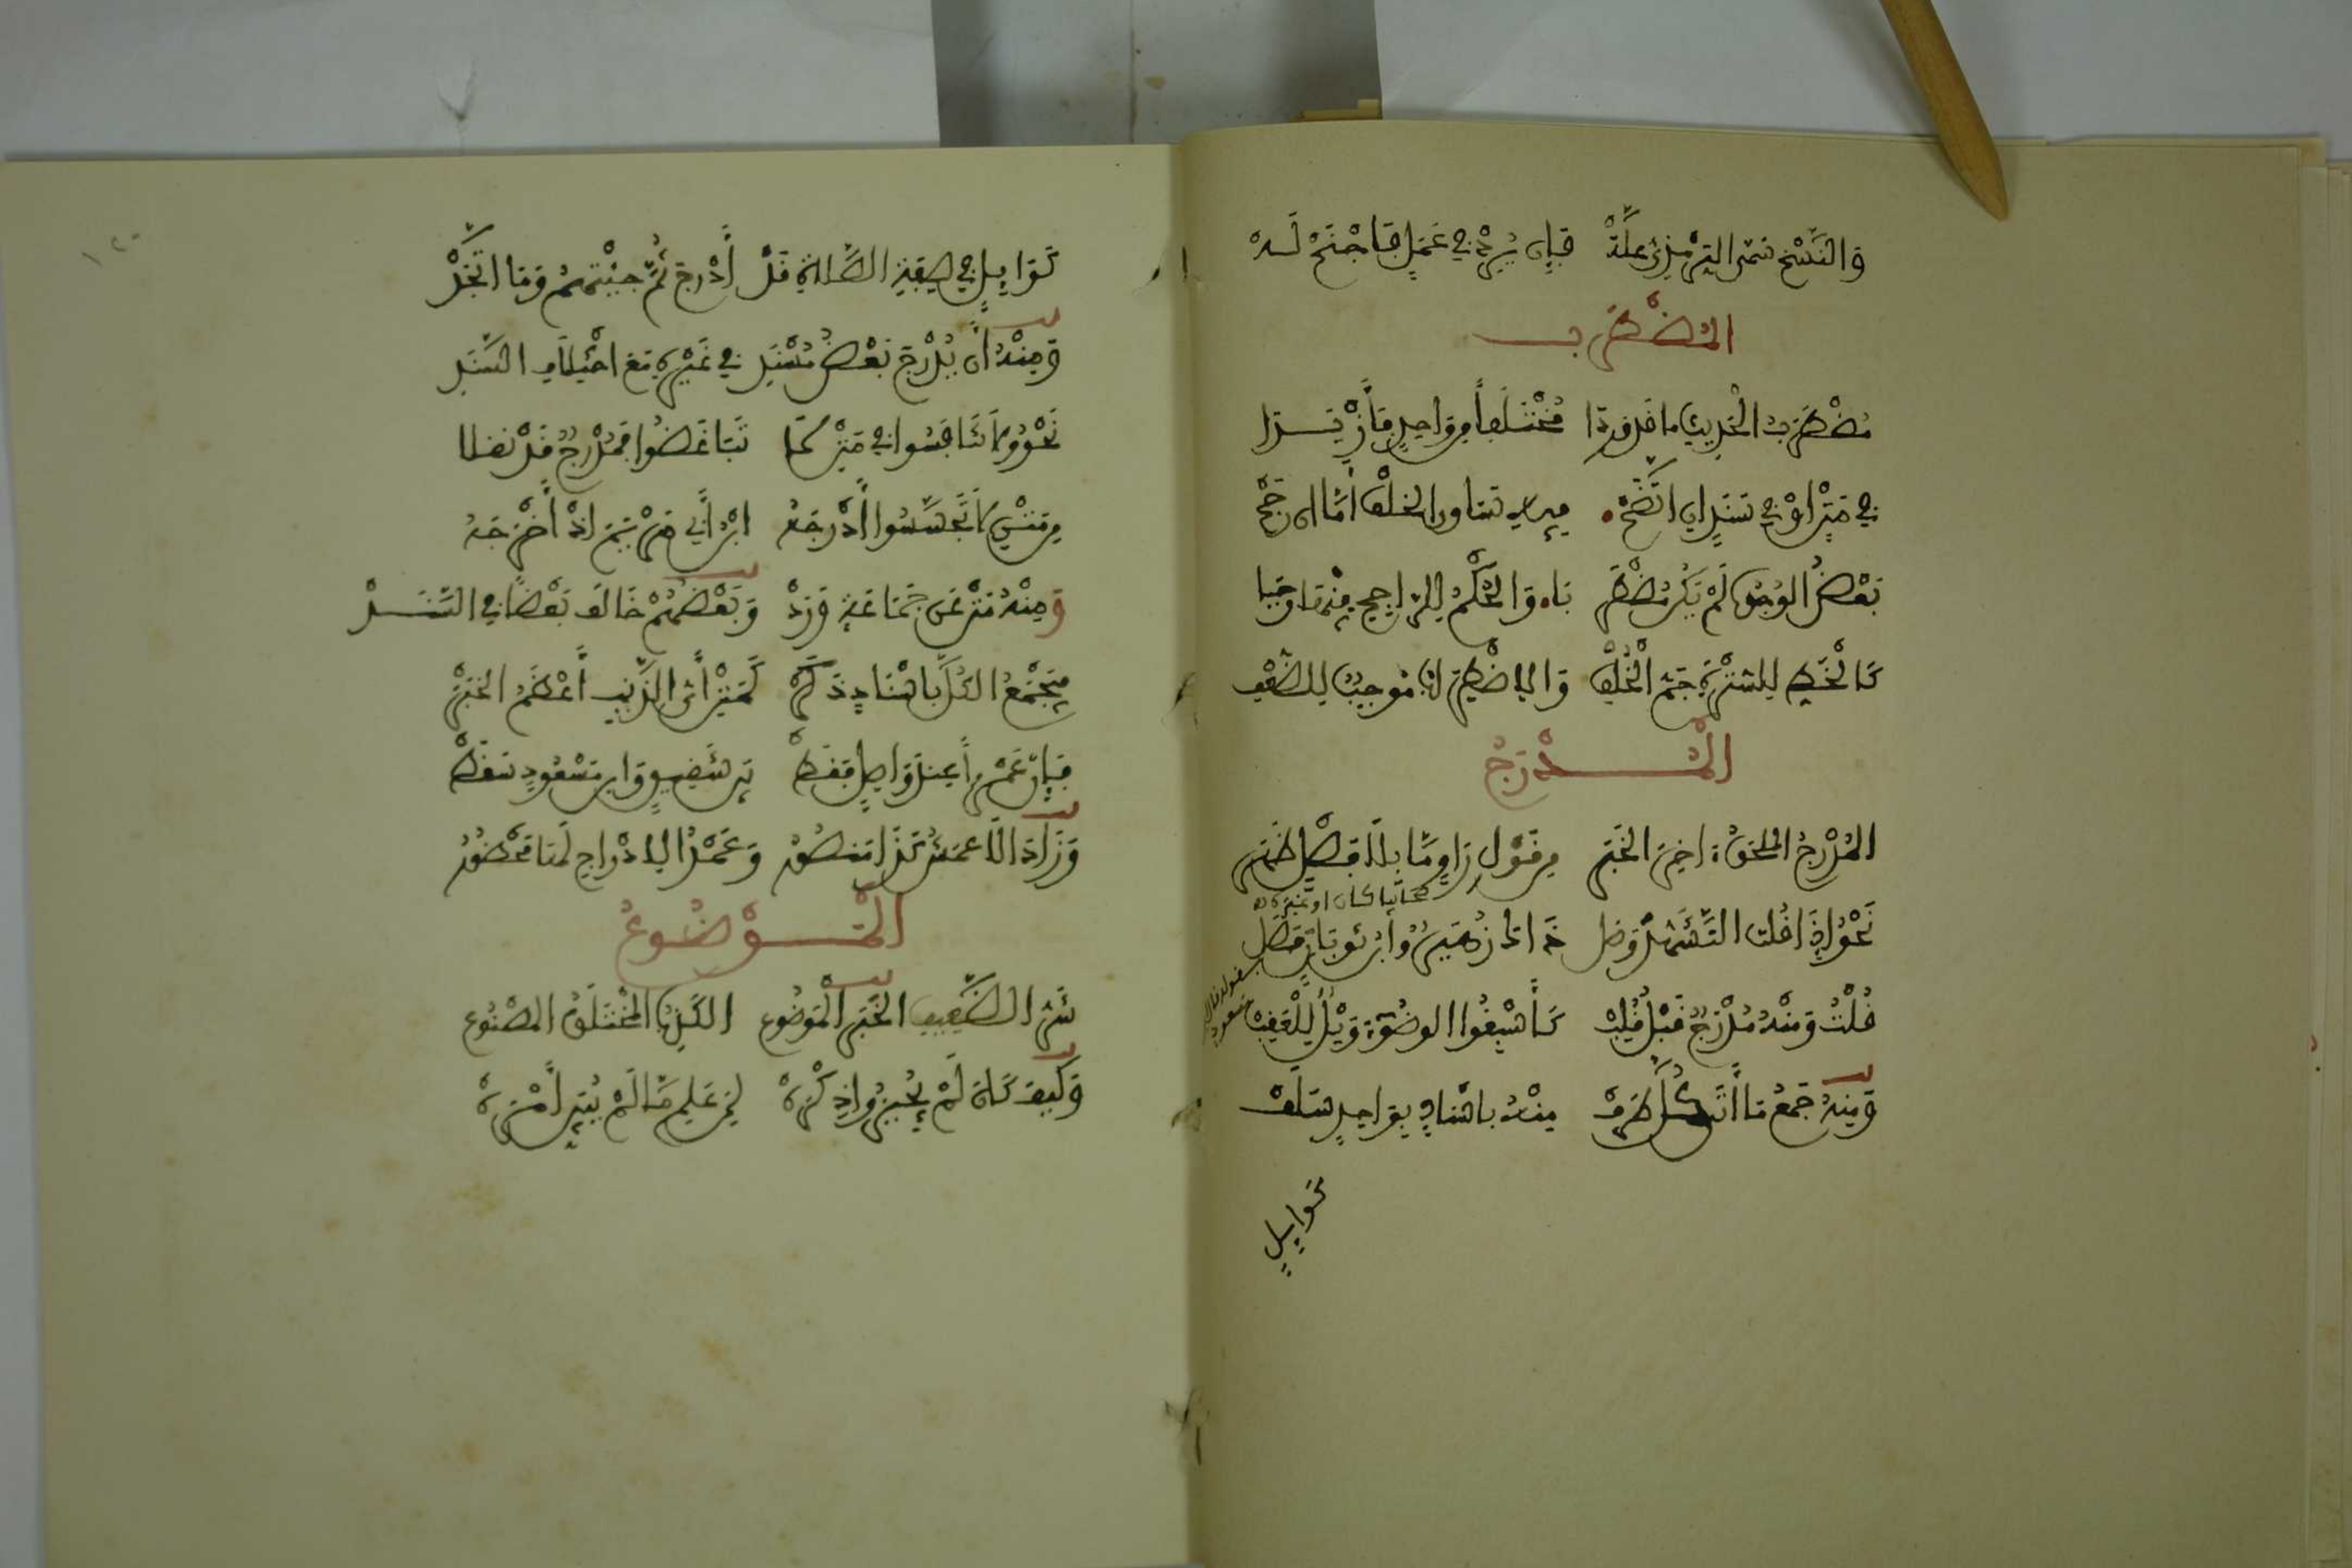 وَالنَّسْخَ سَمَّى التِّرْمِذِيُّ عِلَّهْ فَإِن يُرِدْ فِي عَمَلٍ فَاجْنَحْ لَهْ
المُضْطَرِب
مُضْطَرِبُ الْحَدِيثِ ما قَد وَرَدَا مُخْتَلِفاً مِن وَاحِدٍ فَأَزْيَدَا
فِي مَتْنٍ اوْ فِي سَنَدٍ إِنِ اتَّضَحْ فِيهِ تَسَاوِي الخُلْفِ أَمَّا إِن رَجَحْ
بَعْضُ الوُجُوهِ لَمْ يَكُن مُضْطَرِبَا وَالحُكْمُ لِلرَّاجِحِ مِنْهَا وَجَبَا
كَالْخَطِّ لِلسُّتْرَةِ جَمُّ الْخُلْفِ وَالِاضْطِرَابُ مُوجِبٌ لِلضَّعْفِ
الْمُدْرَجُ
المُدْرَجُ المُلحَقُ ءَاخِرَ الخَبَرْ مِن قَوْلِ رَاوٍ مَّا بِلَا فَصْلٍ ظَهَرْ
صحابيا كان او غيره
نَحْوُ إِذَا قُلتَ التَّشَهُّدَ وَصَلْ ذَاكَ زُهَيْرٌ وَابْنُ ثَوْبَانَ فَصَلْ
بقوله قال ابن مسعود
قُلْتُ وَمِنْهُ مُدْرَجٌ قَبْلُ قُلِبْ كَأَسْبِغُوا الوضُوءَ وَيْلٌ لِلْعَقِبْ
وَمِنهُ جَمْعُ مَا أَتَى كُلُّ طَرَفْ مِنْهُ بِاسْنَادٍ بِوَاحِدٍ سَلَفْ
كَوَايِلٍ
كَوَايِلٍ فِي صِفَةِ الصَّلَاةِ قَدْ أُدْرِجَ ثُمَّ جِئْتَهُمْ وَمَا اتَّحَدْ
وَمِنْهُ أَن يُدْرَجَ بَعْضُ مُسْنَدِ فِي غَيْرِهِ مَعَ اخْتِلَافِ السَّنَدِ
نَحْوُ وَلَا تَنَافَسُوا فِي مَتْنِ لَا تَبَاغَضُوا فَمُدْرَجٌ قَدْ نُقِلَا
مِن مَتْنِ لَا تَجَسَّسُوا أَدْرَجَهُ ابْنُ أَبِي مَرْيَمَ إذْ أَخْرَجَهُ
وَمِنْهُ مَتْنٌ عَن جَمَاعَةٍ وَرَدْ وَبَعْضُهُمْ خَالَفَ بَعْضاً فِي السَّنَدْ
فَيَجْمَعُ الكُلَّ بِاسْنَادٍ ذَكَرْ كَمَتْنِ أَيُّ الذَّنبِ أَعْظَمُ الخَبَرْ
فَإِنَّ عَمْراً عِندَ وَاصِلٍ فَقَطْ بَيْنَ شَقِيقٍ وَابْنِ مَسْعُودٍ سَقَطْ
وَزَادَ الَاعْمَشُ كَذَا مَنصُورُ وَعَمْدُ الِادْرَاجِ لَهَا مَحْظُورُ
الْمَوْضُوعُ
شَرُّ الضَّعِيفِ الخَبَرُ الْمَوضُوعُ الكَذِبُ المُخْتَلَقُ المَصْنُوعُ
وَكَيفَ كَانَ لَمْ يُجِيزُوا ذِكْرَهْ لِمَن عَلِمْ مَا لَمْ يُبَيِّنْ أَمْرَهْ